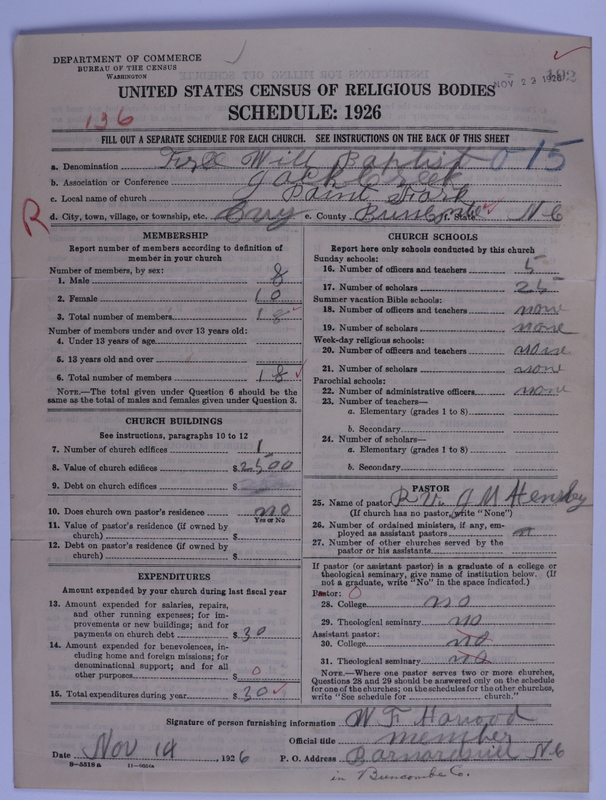 DEPARTMENT OF COMMERCE
BUREAU OF THE CENSUS
WASHINGTON
NOV 23 1926
UNITED STATES CENSUS OF RELIGIOUS BODIES
SCHEDULE: 1926
136
FILL OUT A SEPARATE SCHEDULE FOR EACH CHURCH. SEE INSTRUCTIONS ON THE BACK OF THIS SHEET
a. Denomination Free Will Baptist 0-15
b. Association or Conference Jack Creek
c. Local name of church Paint Fork
R
d. City, town, village, or township, etc. e. County Buncombe State N-C
MEMBERSHIP
Report number of members according to definition of
member in your church
Number of members, by sex:
1. Male 8
2. Female 10
3. Total number of members 18
Number of members under and over 13 years old:
4. Under 13 years of age
5. 13 years old and over
6. Total number of members 18
NOTE.—The total given under Question 6 should be the
same as the total of males and females given under Question 3.
CHURCH BUILDINGS
See instructions, paragraphs 10 to 12
7. Number of church edifices 1
8. Value of church edifices $2500
9. Debt on church edifices $
10. Does church own pastor's residence no
Yes or No
11. Value of pastor's residence (if owned by
church) $
12. Debt on pastor's residence (if owned by
church) $
EXPENDITURES
Amount expended by your church during last fiscal year
13. Amount expended for salaries, repairs,
and other running expenses; for im-
provements or new buildings; and for
payments on church debt $30
14. Amount expended for benevolences, in-
cluding home and foreign missions; for
denominational support; and for all
other purposes $0
15. Total expenditures during year $30
CHURCH SCHOOLS
Report here only schools conducted by this church
Sunday schools:
16. Number of officers and teachers 5
17. Number of scholars 25
Summer vacation Bible schools:
18. Number of officers and teachers none
19. Number of scholars none
Week-day religious schools:
20. Number of officers and teachers none
21. Number of scholars none
Parochial schools:
22. Number of administrative officers none
23. Number of teachers—
a. Elementary (grades 1 to 8)
b. Secondary
24. Number of scholars—
a. Elementary (grades 1 to 8)
b. Secondary
PASTOR
25. Name of pastor Rv. J M Hensley
(If church has no pastor, write "None")
26. Number of ordained ministers, if any, em-
ployed as assistant pastors
27. Number of other churches served by the
pastor or his assistants
If pastor (or assistant pastor) is a graduate of a college or
theological seminary, give name of institution below. (If
not a graduate, write "No" in the space indicated.)
Pastor: 0
28. College no
29. Theological seminary no
Assistant pastor:
30. College no
31. Theological seminary no
NOTE.—Where one pastor serves two or more churches,
Questions 28 and 29 should be answered only on the schedule
for one of the churches; on the schedules for the other churches,
write "See schedule for church."
Signature of person furnishing information W F Harwood
Official title member
Date Nov 14 1926 P. O. Address Barnardsvill N-C
8-5518a
in Buncombe Co.